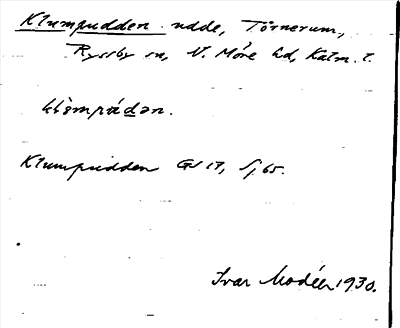 Klumpudden udde, Törnerum,
Ryssby sn, N. Möre hd, Kalm. l.
Klumpudden GS 17, S, 65.
Ivar Modéer 1930.